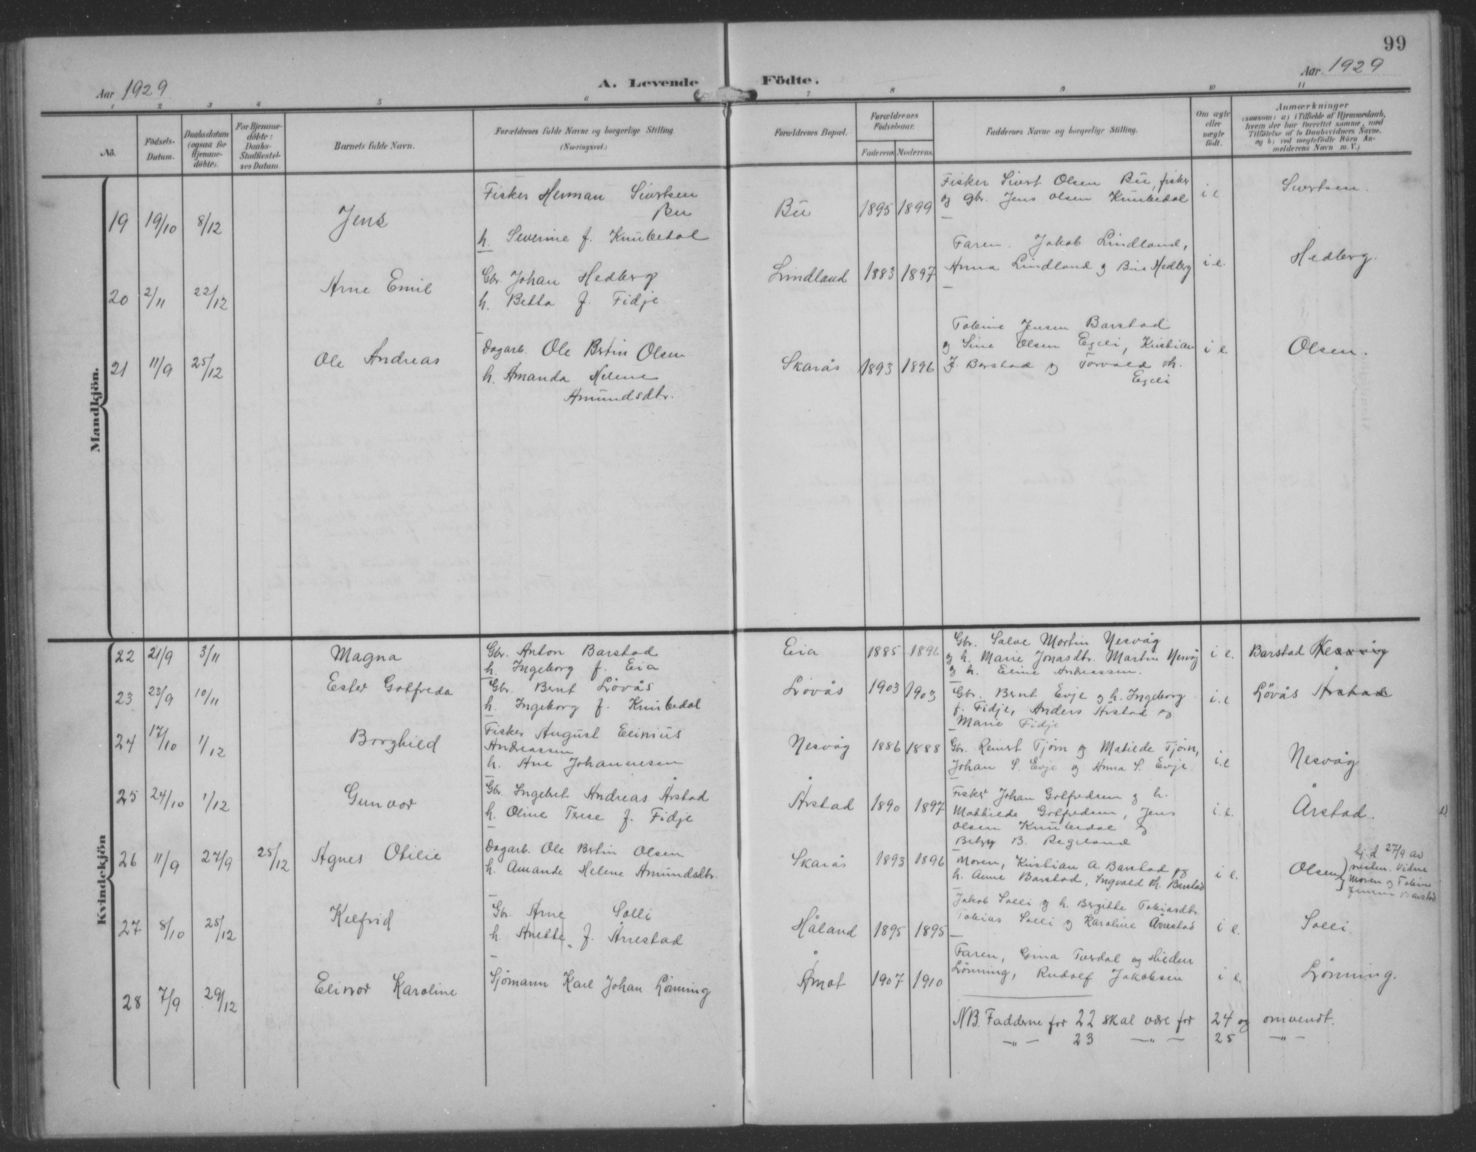 99
Aar 1929
A. Levende Födte.
Aar 1929
1 2 3 4 5 6 7 8 9 10 11
No.
Fødsels-Datum.
Daabsdatum (ogsaa for Hjemme-døbte).
For Hjemme-døbte: Daabs-Stadfæstel-ses Datum.
Barnets fulde Navn.
Forældrenes fulde Navne og borgerlige Stilling (Næringsvei.)
Forældrenes Bopæl.
Forældrenes Fødselsaar.
Faderens. Moderens.
Faddernes Navne og borgerlige Stilling.
Om ægte eller uægte født.
Anmærkninger
Mandkjön.
19 19/10 8/12 Jens
Fisker Herman Sivertsen
Bu
h. Severine f. Knubedal
Bu 1895 1899
Fisker Sivert Olsen Bu, fisker
og gbr. Jens Olsen Knubedal
i e Sivertsen.
20 2/11 22/12 Arne Emil
Gbr. Johan Hedberg
h. Betta f. Fidje
Lindland 1883 1897
Faren. Jakob Lindland,
Anna Lindland og Hedberg
i e. Hedberg.
21 11/9 25/12 Ole Andreas
Dagarb. Ole Bertin Olsen
h. Amanda Helene
Amundsdtr.
Skarås 1893 1896
Tobine Jensen Barstad
og Sine Olsen Egeli, Kristian
J. Barstad og Torvald Th.
Egeli
i e Olsen.
Kvindekjön
22 21/9 3/11 Magna
Gbr. Anton Barstad
h. Ingeborg f. Eia
Eia 1885 1896
Gbr. Salve Martin Nesvåg
og h. Marie Jonasdtr. Martin Nesvåg
og h. Eline Andreassen.
i e. Barstad Nesvåg
23 23/9 10/11 Ester Gotfreda
Gbr. Bernt Løvås
h. Ingeborg f. Knubedal
Løvås 1903 1903
Gbr. Bernt Evje og h. Ingeborg
f. Fidje, Anders Årstad og
Marie Fidje
i.e Løvås Årstad
24 17/10 1/12 Borghild
Fisker August Elinius
Andreassen
h. Ane Johannesen
Nesvåg 1886 1888
Gbr. Reinert Tjørn og Matilde Tjørn,
Johan S. Evje og Anna S. Evje.
i.e Nesvåg
25 24/10 1/12 Gunvor
Gbr. Ingebret Andreas Årstad
h. Oline Trese f. Fidje
Årstad 1890 1897
Fisker Johan Gotfredsen og h.
Mathilde Gotfredsen, Jens
Olsen Knubedal og
Betsy B. Regeland
i. e. Årstad.
26 11/9 27/9 25/12 Agnes Otilie
Dagarb. Ole Bertin Olsen
h. Amanda Helene Amundsdtr.
Skarås 1893 1896
Moren, Kristian A. Barstad og
h. Anne Barstad, Ingvald Th. Barstad
i e. Olsen
hj. d. 27/9 av
Vidner
moren og Tobine
Jensen Barstad
27 8/10 25/12 Kelfrid
Gbr. Arne Solli
h. Anette f. Ånnestad
Håland 1895 1895
Jakob Solli og h. Birgitte Tobiasdtr.
Tobias Solli og Karoline Ånnestad
i e. Solli.
28 7/9 29/12 Elinor Karoline
Sjømann Karl Johan Lønning
Åmot 1907 1910
Faren, Gina Tordal og
Lønning, Rudolf Jakobsen
i e. Lønning.
NB. Fadderne for 22 skal være for 24 og omvendt.
— " — 23 — " — 25 — " —